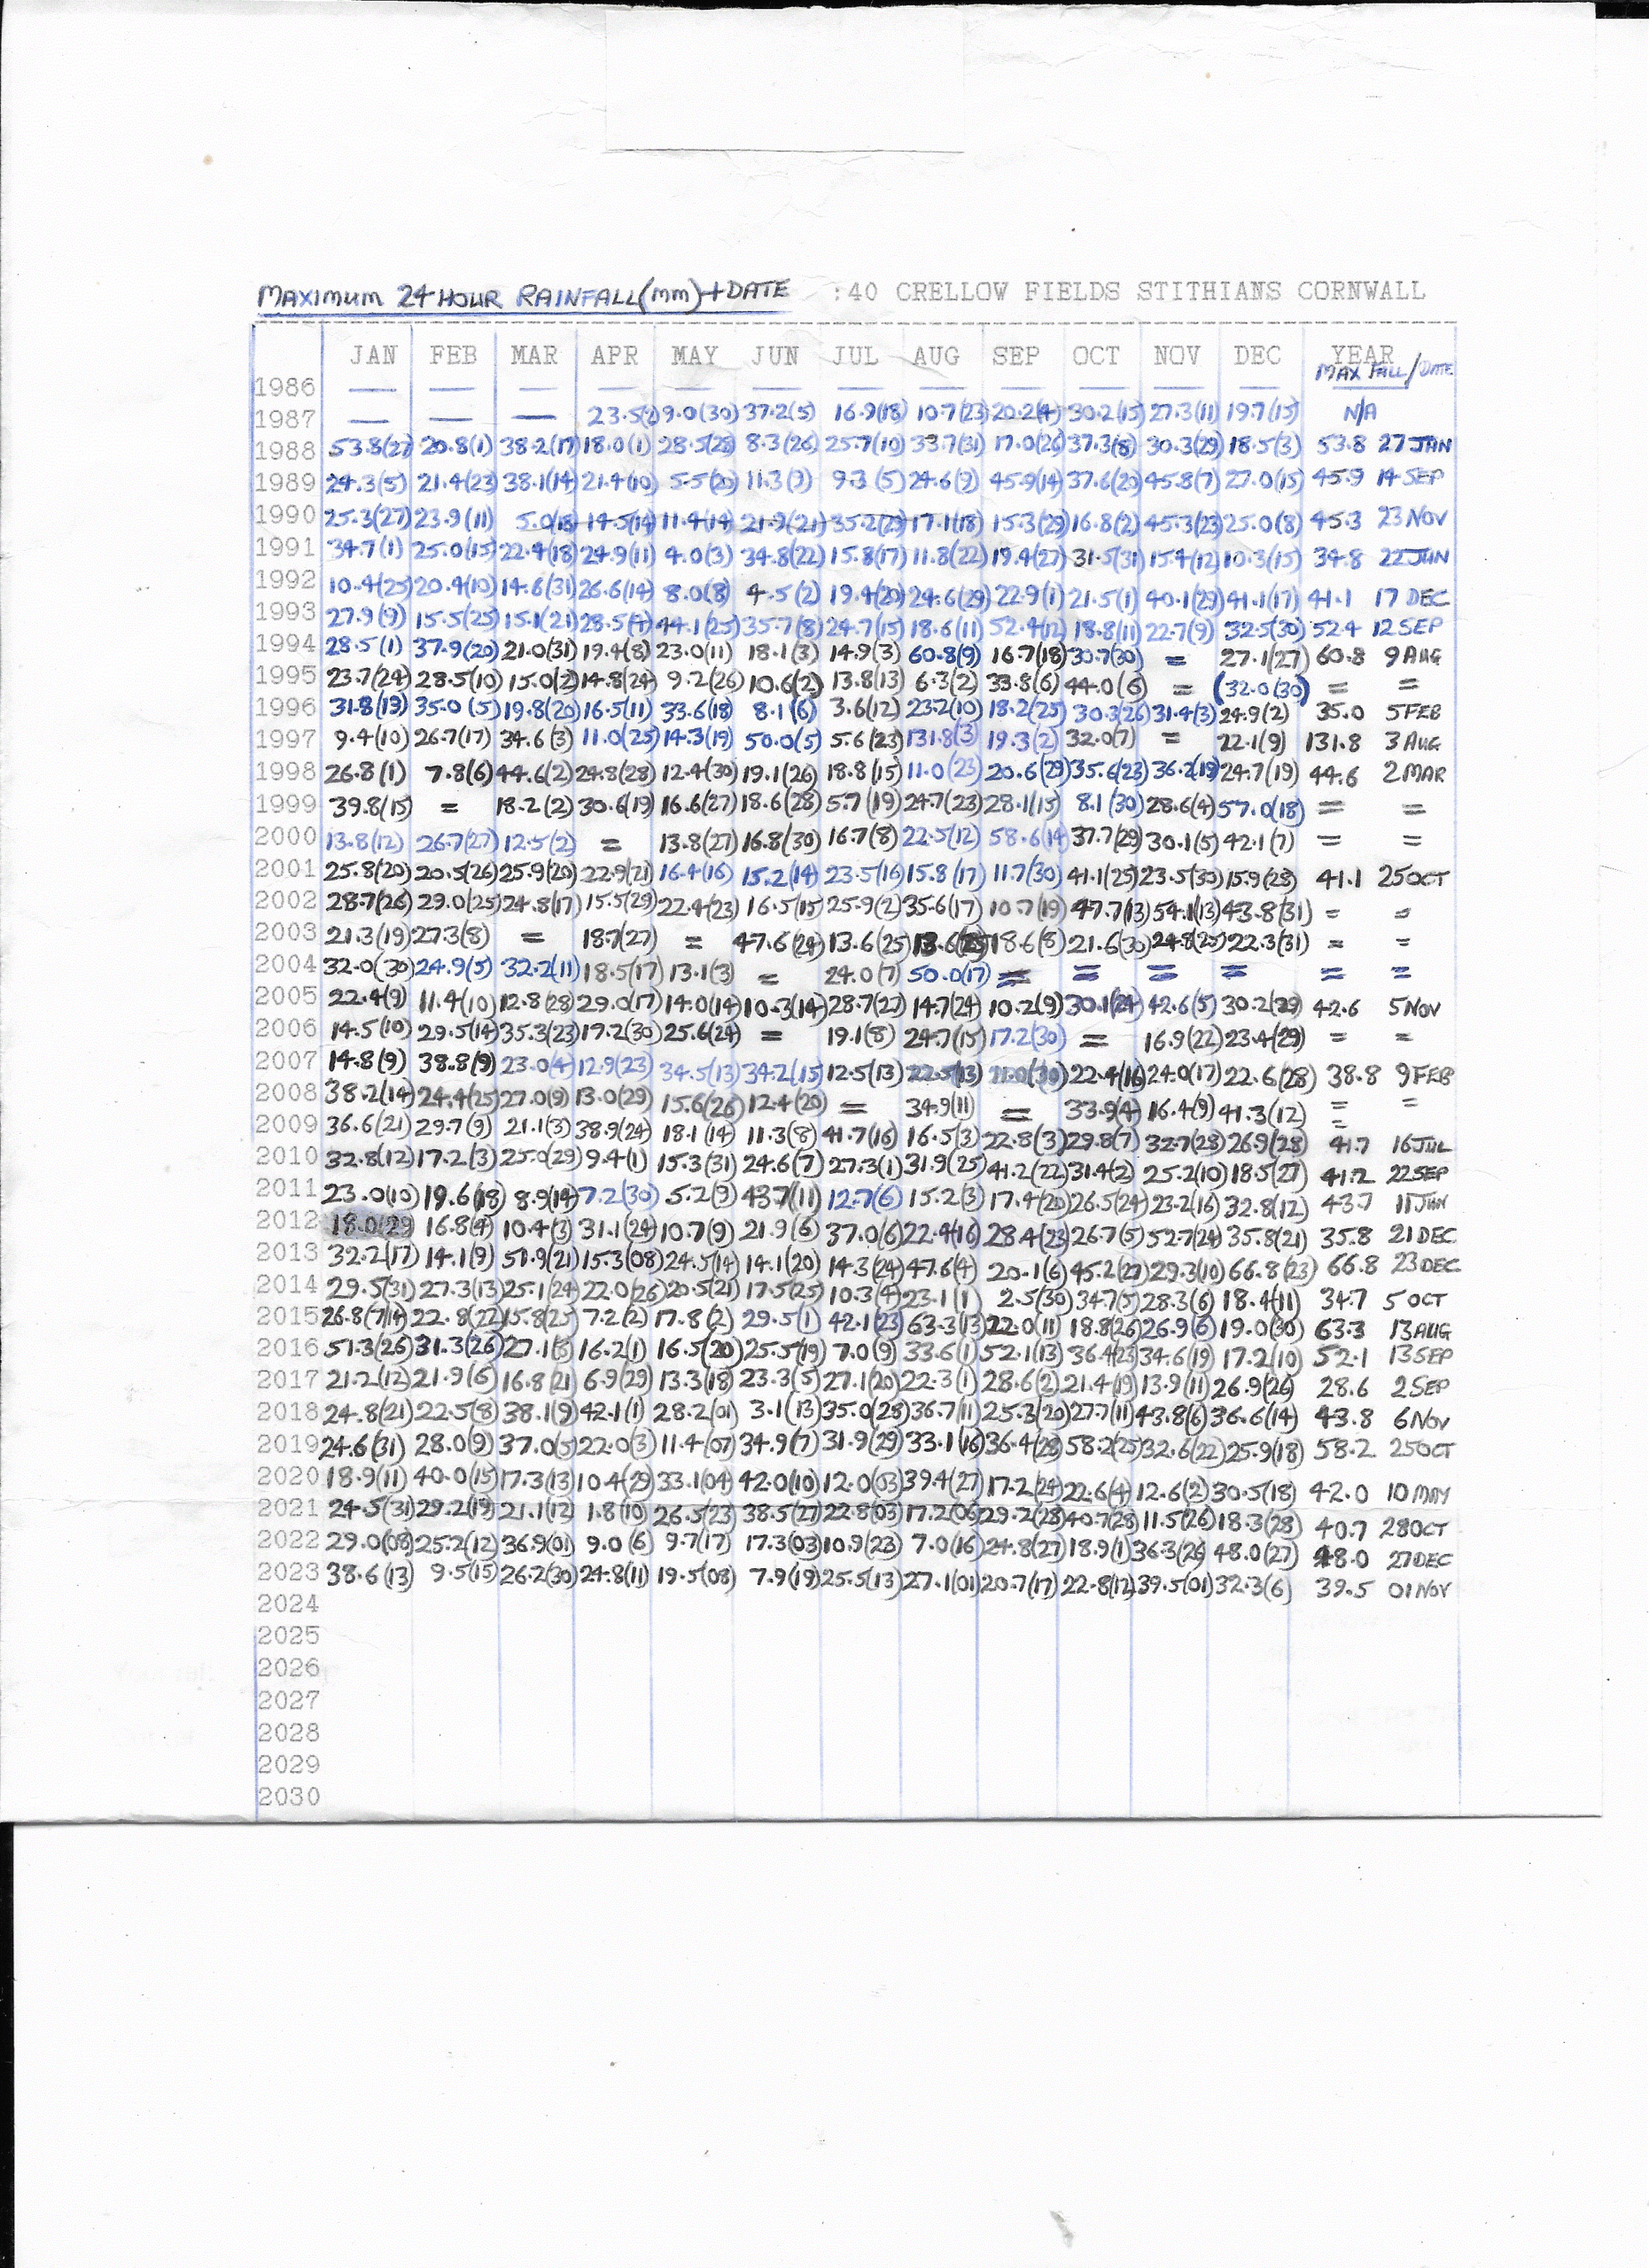 MAXIMUM 24 HOUR RAINFALL (mm) + DATE :40 CRELLOW FIELDS STITHIANS CORNWALL
JAN FEB MAR APR MAY JUN JUL AUG SEP OCT NOV DEC YEAR
MAX FALL / DATE
1986 — — — — — — — — — — — —
1987 — — — 9.0(30) 37.2(5) 16.9(18) 10.7(23) 20.2(4) 30.2(15) 27.3(11) 19.7(15) N/A
1988 53.8(27) 20.8(1) 38.2(17) 18.0(1) 28.5(28) 8.3(26) 25.7(10) 33.7(31) 17.0(26) 37.3(8) 30.3(29) 18.5(3) 53.8 27 JAN
1989 24.3(5) 21.4(23) 38.1(14) 21.4(10) 5.5(20) 11.3( 9.3 (5) 24.6(9) 45.9(14) 37.6(20) 45.8(7) 27.0(15) 45.9 14 SEP
1990 25.3(27) 23.9(11) 5.0(18) 14.5(14) 11.4(14) 21.9(21) 35.2(29) 17.1(18) 15.3(29) 16.8(2) 45.3(23) 25.0(8) 45.3 23 NOV
1991 34.7(1) 25.0(15) 22.4(18) 24.9(11) 4.0(3) 34.8(22) 15.8(17) 11.8(22) 19.4(27) 31.5(31) 15.4(12) 10.3(15) 34.8 22 JUN
1992 10.4(25) 20.4(10) 14.6(31) 26.6(14) 8.0(8) 4.5(2) 19.4(20) 24.6(29) 22.9(1) 21.5(1) 40.1(29) 41.1(17) 41.1 17 DEC
1993 27.9(9) 15.5(25) 15.1(21) 28.5(4) 44.1(25) 35.7(8) 24.7(15) 18.6(11) 52.4(12) 18.8(11) 22.7(9) 32.5(30) 52.4 12 SEP
1994 28.5(1) 37.9(20) 21.0(31) 19.4(8) 23.0(11) 18.1(3) 14.9(3) 60.8(9) 16.7(18) 30.7(30) = 27.1(27) 60.8 9 AUG
1995 23.7(24) 28.5(10) 15.0(2) 14.8(24) 9.2(26) 10.6(2) 13.8(13) 6.3(2) 33.8(6) 44.0(6) = (32.0(30) = =
1996 31.8(13) 35.0 (5) 19.8(20) 16.5(11) 33.6(18) 8.1(6) 3.6(12) 23.2(10) 18.2(25) 30.3(26) 31.4(3) 24.9(2) 35.0 5 FEB
1997 9.4(10) 26.7(17) 34.6(3) 11.0(25) 14.3(19) 50.0(5) 5.6(23) 131.8(3) 19.3(2) 32.0(7) = 22.1(9) 131.8 3 AUG
1998 26.8(1) 7.8(6) 44.6(2) 24.8(28) 12.4(30) 19.1(26) 18.8(15) 11.0(23) 20.6(29) 35.6(23) 36.2(19) 24.7(19) 44.6 2 MAR
1999 39.8(15) = 18.2(2) 30.6(19) 16.6(27) 18.6(28) 5.7(19) 24.7(23) 28.1(15) 8.1(30) 28.6(4) 57.0(18) = =
2000 13.8(12) 26.7(27) 12.5(2) = 13.8(27) 16.8(30) 16.7(8) 22.5(12) 58.6(14) 37.7(29) 30.1(5) 42.1(7) = =
2001 25.8(20) 20.5(26) 25.9(20) 22.9(21) 16.4(16) 15.2(14) 23.5(16) 15.8(17) 11.7(30) 41.1(25) 23.5(30) 15.9(28) 41.1 25 OCT
2002 28.7(26) 29.0(25) 24.8(17) 15.5(29) 22.4(23) 16.5(15) 25.9(2) 35.6(17) 10.7(19) 47.7(13) 54.1(13) 43.8(31) = =
2003 21.3(19) 27.3(8) = 18.7(27) = 47.6(24) 13.6(25) 18.6(8) 21.6(30) 24.8(25) 22.3(31) = =
2004 32.0(30) 24.9(5) 32.2(11) 18.5(17) 13.1(3) = 24.0(7) 50.0(17) = = = = = =
2005 22.4(9) 11.4(10) 12.8(28) 29.0(17) 14.0(14) 10.3(14) 28.7(27) 14.7(24) 10.2(9) 30.1(24) 42.6(5) 30.2(29) 42.6 5 NOV
2006 14.5(10) 29.5(14) 35.3(23) 17.2(30) 25.6(24) = 19.1(8) 24.7(15) 17.2(30) = 16.9(22) 23.4(29) = =
2007 14.8(9) 38.8(9) 23.0(4) 12.9(23) 34.5(13) 34.2(15) 12.5(13) 22.5(13) 11.0(30) 22.4(16) 24.0(17) 22.6(28) 38.8 9 FEB
2008 38.2(14) 24.4(25) 27.0(9) 13.0(29) 15.6(26) 12.4(20) = 34.9(11) = 33.9(4) 16.4(9) 41.3(12) = =
2009 36.6(21) 29.7(9) 21.1(3) 38.9(24) 18.1(14) 11.3(8) 41.7(16) 16.5(3) 22.8(3) 29.8(7) 32.7(28) 26.9(28) 41.7 16 JUL
2010 32.8(12) 17.2(3) 25.0(29) 9.4(1) 15.3(31) 24.6(7) 27.3(1) 31.9(25) 41.2(22) 31.4(2) 25.2(10) 18.5(27) 41.2 22 SEP
2011 23.0(10) 19.6(18) 8.9(14) 7.2(30) 5.2(9) 43.7(11) 12.7(6) 15.2(3) 17.4(20) 26.5(24) 23.2(16) 32.8(12) 43.7 11 JUN
2012 18.0(29 16.8(4) 10.4(3) 31.1(24) 10.7(9) 21.9(6) 37.0(6) 22.4(16) 28.4(23) 26.7(5) 52.7(24) 35.8(21) 35.8 21 DEC
2013 32.2(17) 14.1(9) 51.9(21) 15.3(08) 24.5(14) 14.1(20) 14.3(24) 47.6(4) 20.1(6) 45.2(27) 29.3(10) 66.8(23) 66.8 23 DEC
2014 29.5(31) 27.3(13) 25.1(24) 22.0(26) 20.5(21) 17.5(25) 10.3(4) 23.1(1 2.5(30) 34.7(5) 28.3(6) 18.4(11) 34.7 5 OCT
2015 26.8(7/14) 22.8(22) 15.8(25) 7.2(2) 17.8(2) 29.5(1) 42.1(23) 63.3(13) 22.0(11) 18.8(26) 26.9(6) 19.0(30) 63.3 13 AUG
2016 51.3(26) 31.3(26) 27.1(3 16.2(1) 16.5(20) 25.5(19) 7.0(9) 33.6(1) 52.1(13) 36.4(23) 34.6(19) 17.2(10) 52.1 13 SEP
2017 21.2(12) 21.9(6) 16.8(21 6.9(29) 13.3(18) 23.3(5) 27.1(20) 22.3(1) 28.6(2) 21.4(19) 13.9(11) 26.9(26) 28.6 2 SEP
2018 24.8(21) 22.5(8) 38.1(9) 42.1(1) 28.2(01) 3.1(13) 35.0(28) 36.7(11) 25.3(20) 27.7(11) 43.8(6) 36.6(14) 43.8 6 NOV
2019 24.6(31) 28.0(9) 37.0(5) 22.0(3) 11.4(07) 34.9(7) 31.9(29) 33.1(16) 36.4(28) 58.2(25) 32.6(22) 25.9(18) 58.2 25 OCT
2020 18.9(11) 40.0(15) 17.3(13) 10.4(29) 33.1(04) 42.0(10) 12.0(03) 39.4(27) 17.2(24) 22.6(4) 12.6(2) 30.5(18) 42.0 10 MAY
2021 24.5(31) 29.2(19) 21.1(12) 1.8(10) 26.5(23 38.5(27) 22.8(03) 17.2(06) 29.2(28) 40.7(28) 11.5(26) 18.3(28) 40.7 28 OCT
2022 29.0(08) 25.2(12) 36.9(01) 9.0 (6) 9.7(17) 17.3(03) 10.9(23) 7.0(16) 24.8(27) 18.9(1) 36.3(26) 48.0(27) 48.0 27 DEC
2023 38.6(13) 9.5(15) 26.2(30) 24.8(11) 19.5(08) 7.9(19) 25.5(13) 27.1(01) 20.7(17) 22.8(12) 39.5(01) 32.3(6) 39.5 01 NOV
2024
2025
2026
2027
2028
2029
2030